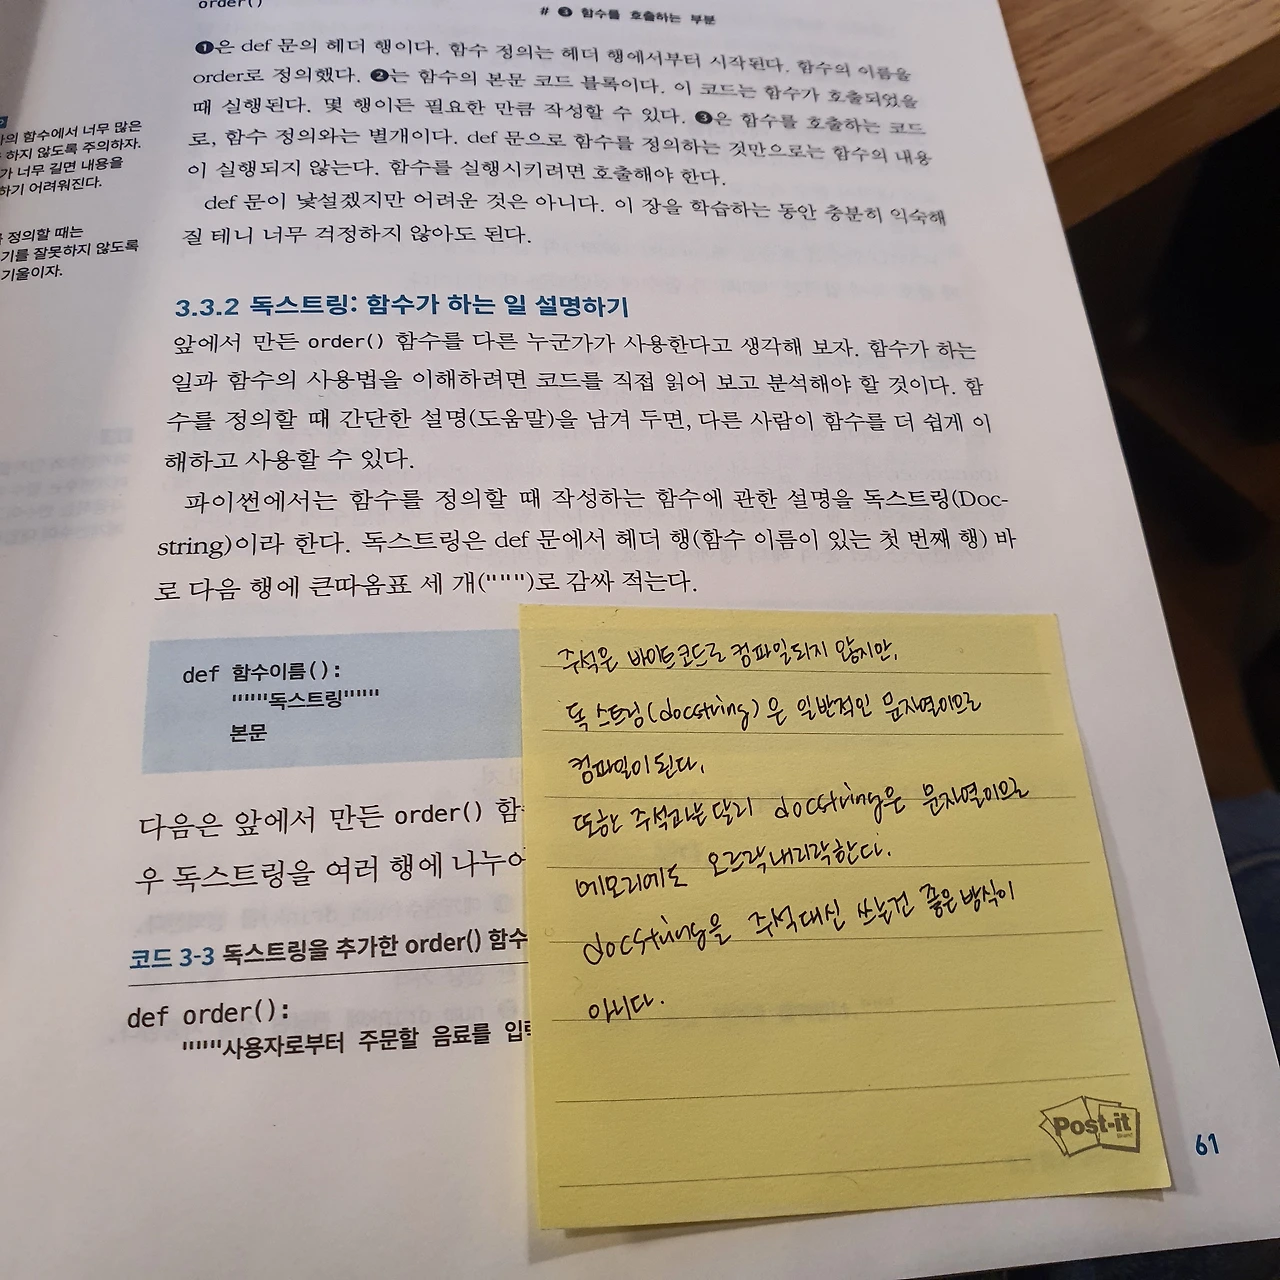 order()
# ❸ 함수를 호출하는 부분
❶은 def 문의 헤더 행이다. 함수 정의는 헤더 행에서부터 시작된다. 함수의 이름을
order로 정의했다. ❷는 함수의 본문 코드 블록이다. 이 코드는 함수가 호출되었을
때 실행된다. 몇 행이든 필요한 만큼 작성할 수 있다. ❸은 함수를 호출하는 코드
로, 함수 정의와는 별개이다. def 문으로 함수를 정의하는 것만으로는 함수의 내용
이 실행되지 않는다. 함수를 실행시키려면 호출해야 한다.
def 문이 낯설겠지만 어려운 것은 아니다. 이 장을 학습하는 동안 충분히 익숙해
질 테니 너무 걱정하지 않아도 된다.
함수에서 너무 많은
하지 않도록 주의하자.
가 너무 길면 내용을
하기 어려워진다.
정의할 때는
기를 잘못하지 않도록
기울이자.
3.3.2 독스트링: 함수가 하는 일 설명하기
앞에서 만든 order() 함수를 다른 누군가가 사용한다고 생각해 보자. 함수가 하는
일과 함수의 사용법을 이해하려면 코드를 직접 읽어 보고 분석해야 할 것이다. 함
수를 정의할 때 간단한 설명(도움말)을 남겨 두면, 다른 사람이 함수를 더 쉽게 이
해하고 사용할 수 있다.
파이썬에서는 함수를 정의할 때 작성하는 함수에 관한 설명을 독스트링(Doc-
string)이라 한다. 독스트링은 def 문에서 헤더 행(함수 이름이 있는 첫 번째 행) 바
로 다음 행에 큰따옴표 세 개(""")로 감싸 적는다.
def 함수이름():
"""독스트링"""
본문
다음은 앞에서 만든 order() 함
우 독스트링을 여러 행에 나누어
코드 3-3 독스트링을 추가한 order() 함수
def order():
"""사용자로부터 주문할 음료를 입력
주석은 바이트코드로 컴파일되지 않지만,
독스트링(docstring)은 일반적인 문자열이므로
컴파일이 된다.
또한 주석과는 달리 docstring은 문자열이므로
메모리에도 오르락내리락한다.
docstring을 주석 대신 쓰는건 좋은 방식이
아니다.
Post-it
61